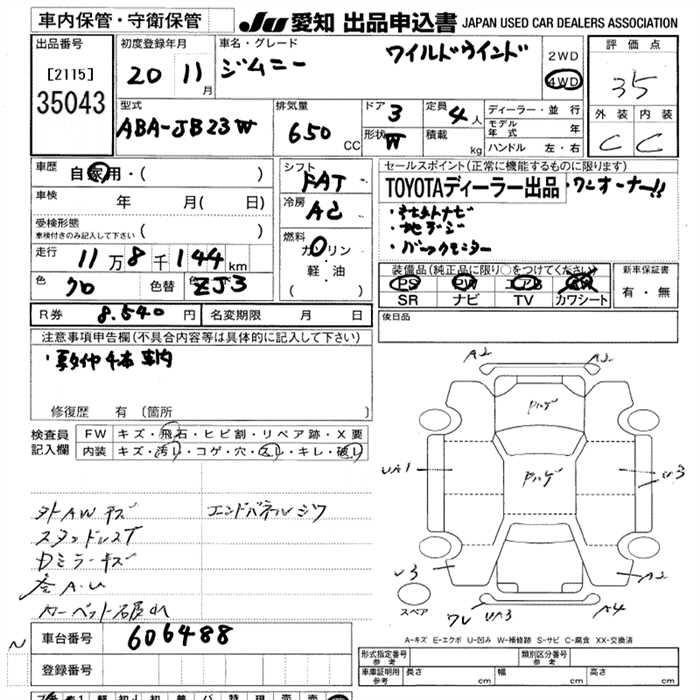 車内保管・守衛保管
JU 愛知 出品申込書 JAPAN USED CAR DEALERS ASSOCIATION
出品番号
[2115]
35043
初度登録年月
20 11月
車名・グレード
ジムニー ワイルドウインド
2WD
4WD
評価点
35
外装 内装
C C
型式
ABA-JB23W
排気量
650 CC
ドア 3
形状 W
定員 4人
積載 kg
ディーラー・並行
モデル年式 年
ハンドル 左・右
車歴
自家用・( )
車検
年 月( 日)
受検形態
車検付きのみ記入して下さい ( )
走行
11万8千144km
色 クロ 色替 色 ZJ3
シフト
FAT
冷房
AC
燃料
ガソリン
軽・油
( )
セールスポイント(正常に機能するものに限ります)
TOYOTAディーラー出品・ワンオーナー!!
・社外ナビ
・地デジ
・バックモニター
装備品(純正品に限り○をつけてください)
PS PW エアB
SR ナビ TV カワシート
新車保証書
有・無
R券 8.540円 名変期限 月 日
後日品
注意事項申告欄(不具合内容等は具体的に記入して下さい)
4本 車内
修復歴 有 〔箇所 〕
検査員
記入欄
FW キズ・飛石・ヒビ割・リペア跡・X要
内装 キズ・汚レ・コゲ・穴・スレ・キレ・破レ
外AWキズ エンドパネルシワ
スタッドレスT
Dミラーキズ
全A.U
A2 A2
UA1
U3
U3
A2
スペア
ワレ UA3 A4
A-キズ E-エクボ U-凹み W-補修跡 S-サビ C-腐食 XX-交換済
車台番号 606488
登録番号
形式指定番号
参考
類別区分番号
参考
車庫証明用
参考
長さ cm 幅 cm 高さ cm